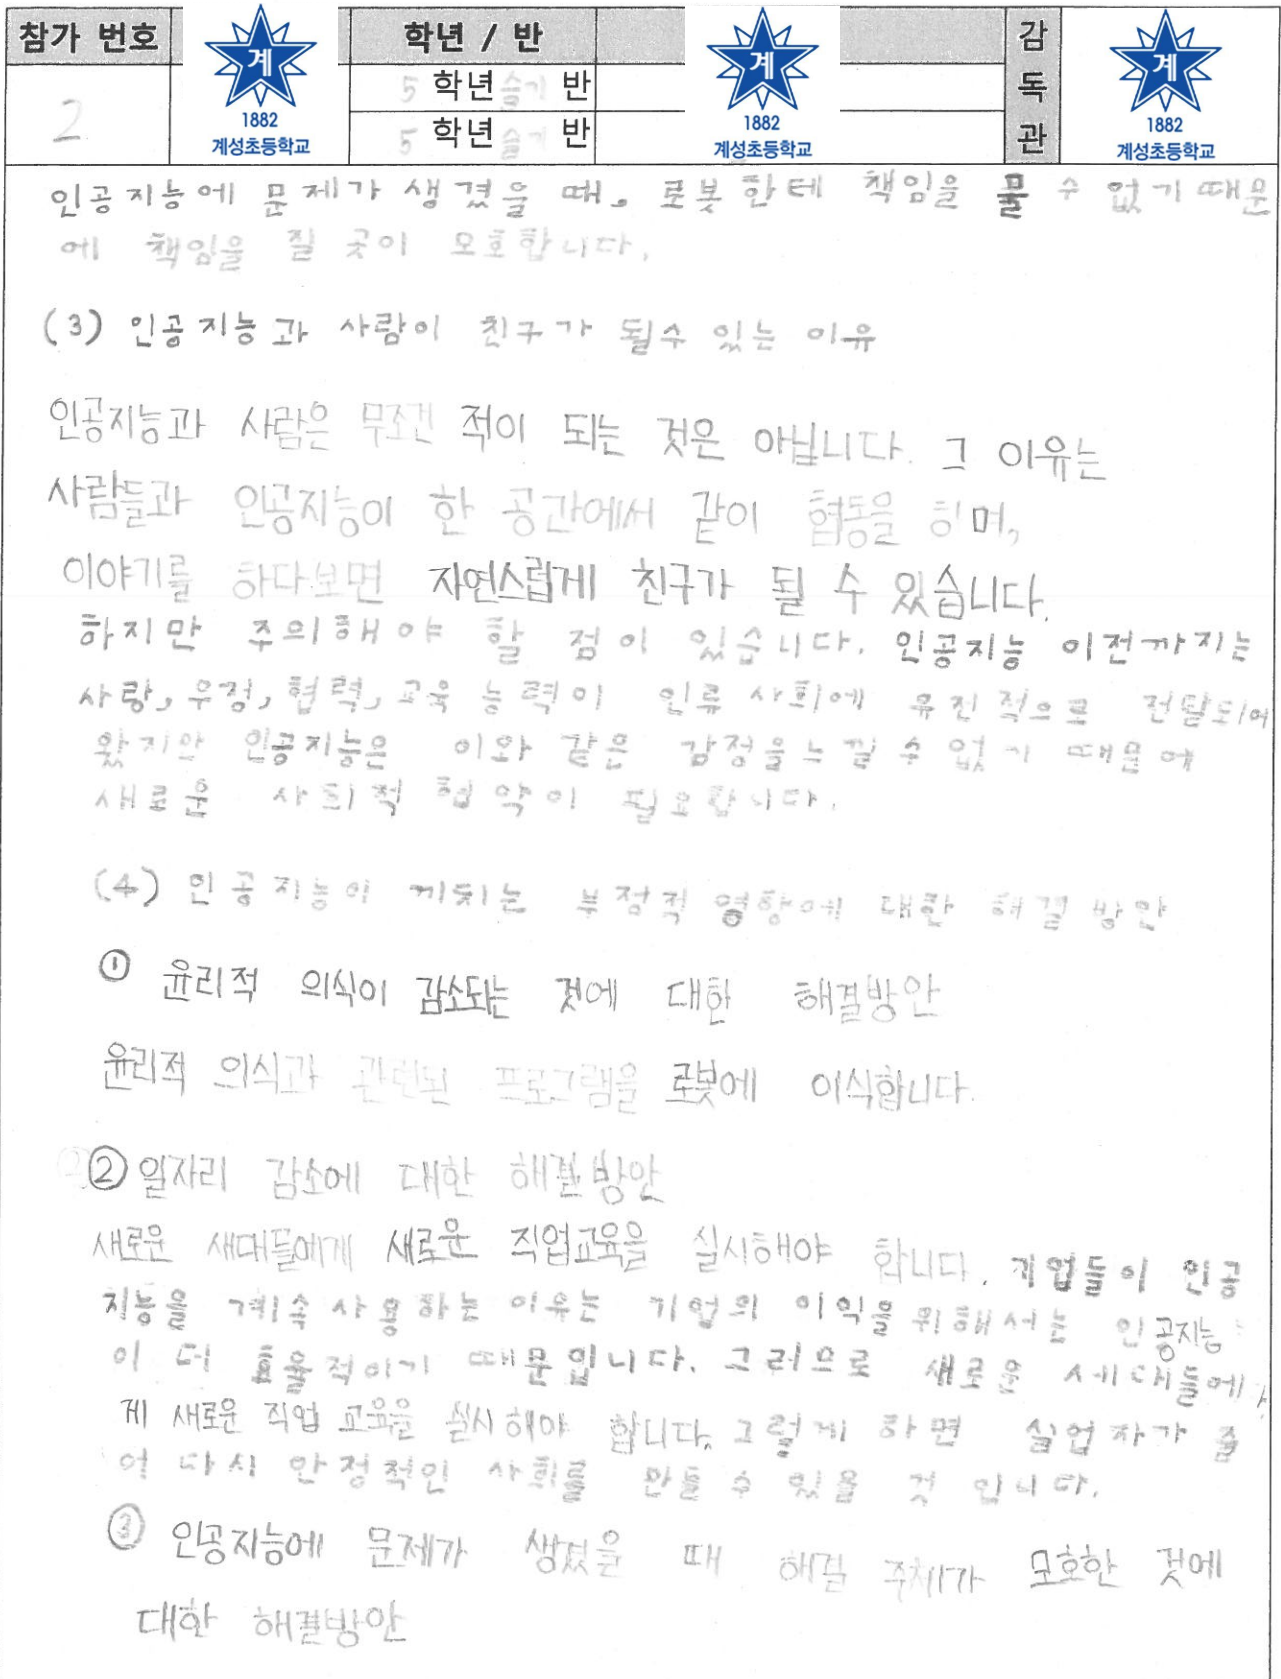 참가 번호 학년 / 반 감독관
계 1882 계성초등학교
계 1882 계성초등학교
계 1882 계성초등학교
2
5 학년 슬기 반
5 학년 슬기 반
인공지능에 문제가 생겼을 때, 로봇한테 책임을 물 수 없기 때문
에 책임을 질 곳이 모호합니다.
(3) 인공지능과 사람이 친구가 될수 있는 이유
인공지능과 사람은 무조건 적이 되는 것은 아닙니다. 그 이유는
사람들과 인공지능이 한 공간에서 같이 협동을 하며,
이야기를 하다보면 자연스럽게 친구가 될 수 있습니다.
하지만 주의해야 할 점이 있습니다. 인공지능 이전까지는
사랑, 우정, 협력, 교육 능력이 인류 사회에 유전적으로 전달되어
왔지만 인공지능은 이와 같은 감정을 느낄 수 없기 때문에
새로운 사회적 협약이 필요합니다.
(4) 인공지능이 끼치는 부정적 영향에 대한 해결 방안
① 윤리적 의식이 감소되는 것에 대한 해결방안
윤리적 의식과 관련된 프로그램을 로봇에 이식합니다.
② 일자리 감소에 대한 해결방안
새로운 새대들에게 새로운 직업교육을 실시해야 합니다. 기업들이 인공
지능을 계속 사용하는 이유는 기업의 이익을 위해서는 인공지능
이 더 효율적이기 때문입니다. 그러므로 새로운 세대들에
게 새로운 직업 교육을 실시해야 합니다. 그렇게 하면 실업자가 줄
어 다시 안정적인 사회를 만들 수 있을 것 입니다.
③ 인공지능에 문제가 생겼을 때 해결 주체가 모호한 것에
대한 해결방안